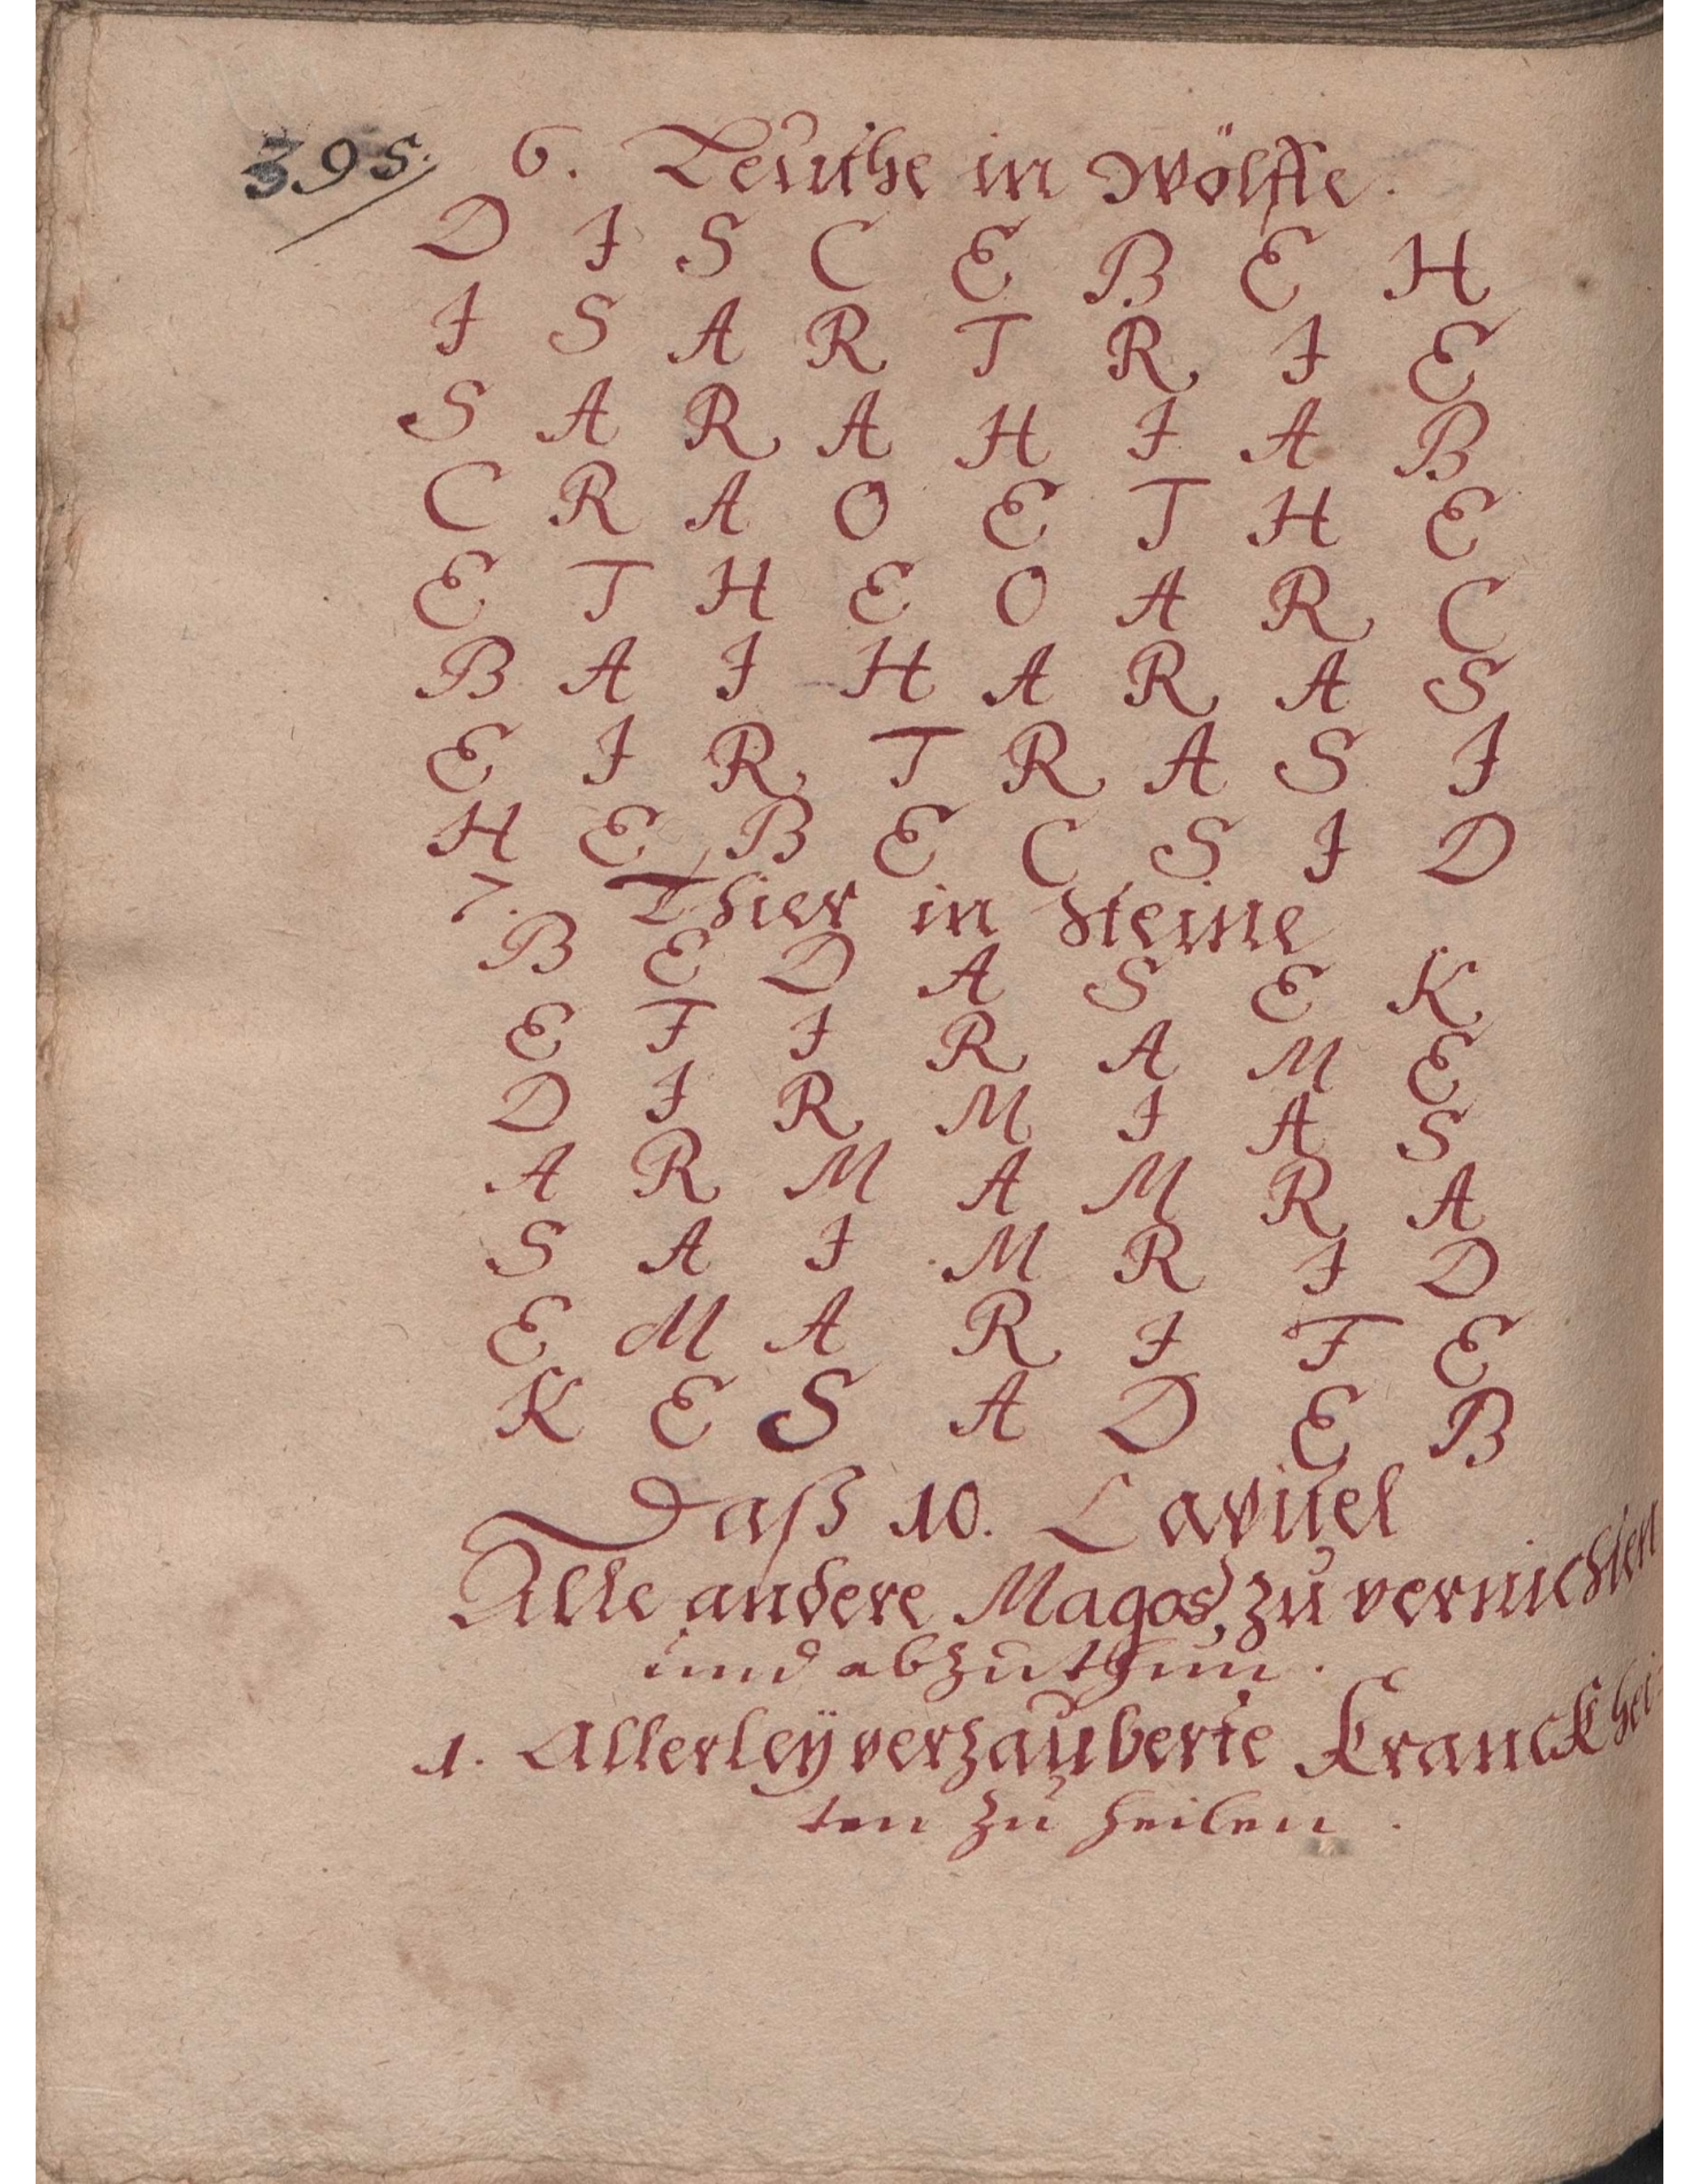 395.
6. Leuthe in Wölffe.
D I S C E B E H
I S A R T R I E
S A R A H I A B
C R A O E T H E
E T H E O A R C
B A I H A R A S
E I R T R A S I
H E B E C S I D
7. Thier in Steine
B E D A S E K
E F I R A M E
D I R M I A S
A R M A M R A
S A I M R I D
E M A R I F E
K E S A D E B
Daß 10. Capitel
Alle andere Magos, zu vernichten
und abzuthun.
1. Allerleÿ verzauberte Kranckhei-
ten zu heilen.